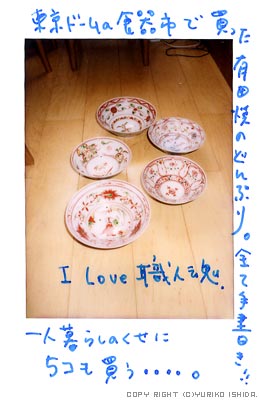 東京ドームの食器市で買った
有田焼のどんぶり。全て手書き!!
I Love 職人魂.
一人暮らしのくせに
5コも買う・・・・・。
COPY RIGHT (C)YURIKO ISHIDA.